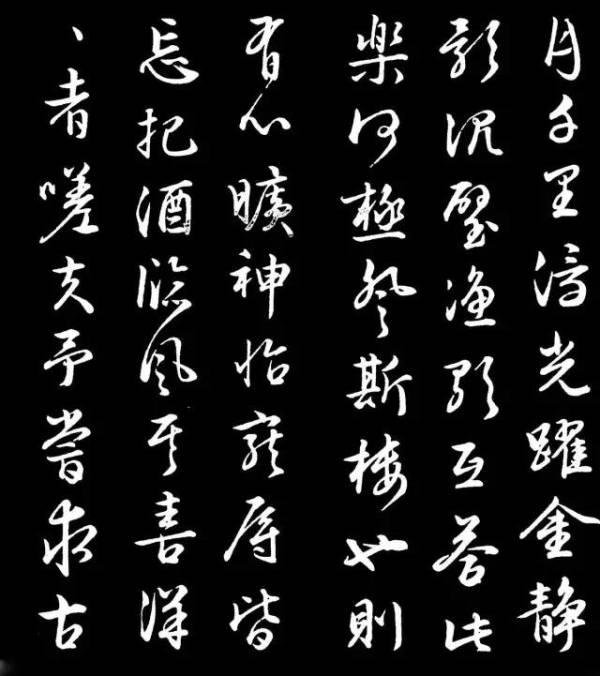 月千里浮光躍金静
影沉璧漁歌互答此
樂何極登斯樓也則
有心曠神怡寵辱皆
忘把酒臨風其喜洋
、者嗟夫予嘗求古